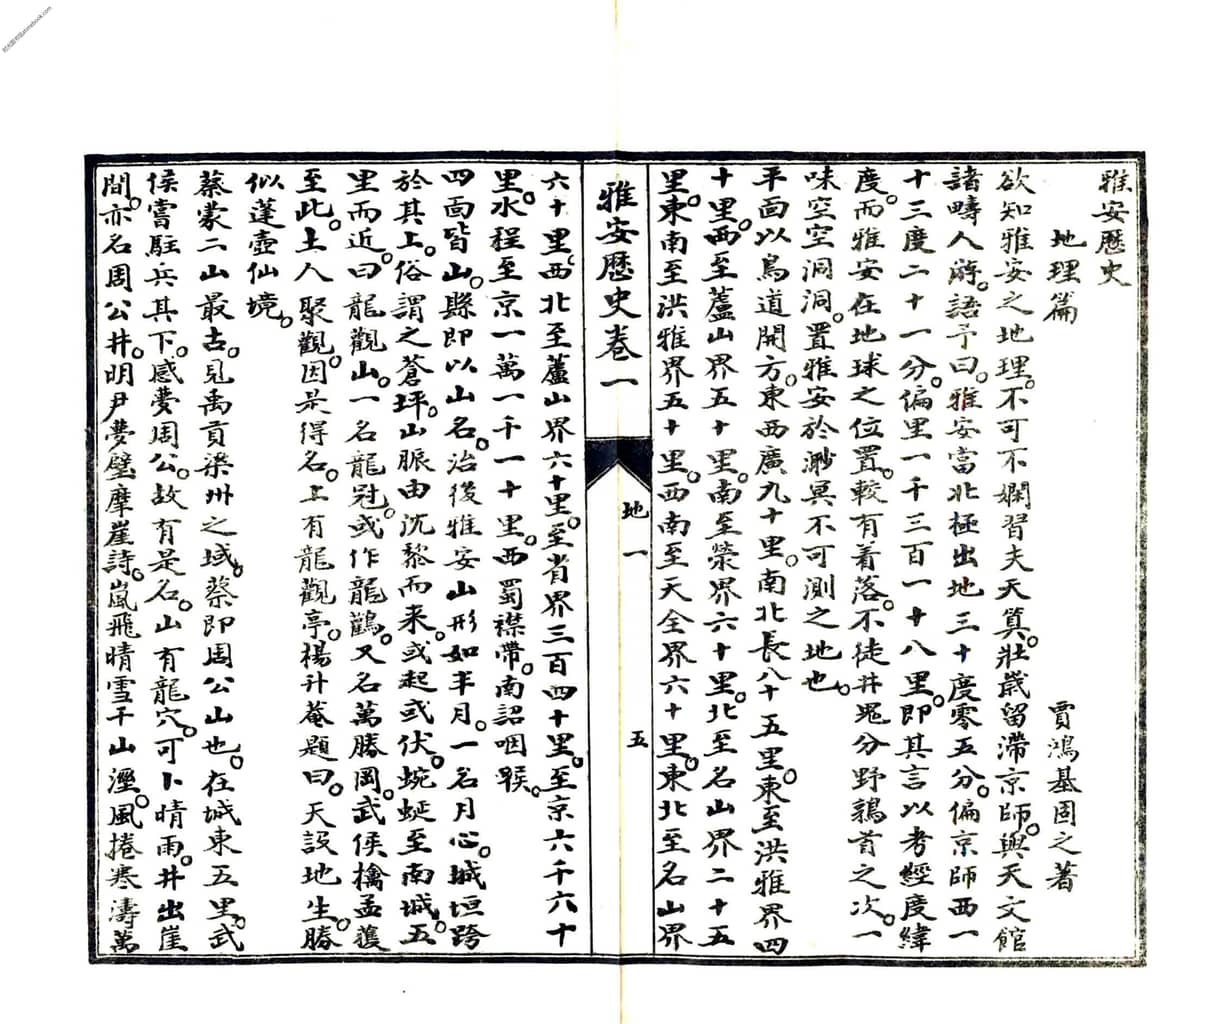 雅安歷史
地理篇　賈鴻基固之著
欲知雅安之地理。不可不嫻習夫天算。壯歲留滯京師。與天文館
諸疇人游。語予曰。雅安當北極出地三十度零五分。偏京師西一
十三度二十一分。偏里一千三百一十八里。即其言以考經度緯
度。而雅安在地球之位置。較有着落。不徒井鬼分野鶉首之次。一
味空空洞洞。置雅安於渺冥不可測之地也。
平面以鳥道開方。東西廣九十里。南北長八十五里。東至洪雅界四
十里。西至蘆山界五十里。南至滎界六十里。北至名山界二十五
里。東南至洪雅界五十里。西南至天全界六十里。東北至名山界
雅安歷史卷一　地一　五
六十里。西北至蘆山界六十里。至省界三百四十里。至京六千六十
里。水程至京一萬一千一十里。西蜀襟帶。南詔咽喉。
四面皆山。縣即以山名。治後雅安山形如半月。一名月心。城垣跨
於其上。俗謂之蒼坪。山脈由沈黎而來。或起或伏。蜿蜒至南城。五
里而近。曰龍觀山。一名龍冠。或作龍鸛。又名萬勝岡。武侯擒孟獲
至此。土人聚觀。因是得名。上有龍觀亭。楊升菴題曰。天設地生。勝
似蓬壺仙境。
蔡蒙二山最古。見禹貢梁州之域。蔡即周公山也。在城東五里。武
侯嘗駐兵其下。感夢周公。故有是名。山有龍穴。可卜晴雨。井出崖
間。亦名周公井。明尹夢璧摩崖詩。嵐飛晴雪千山溼。風捲寒濤萬